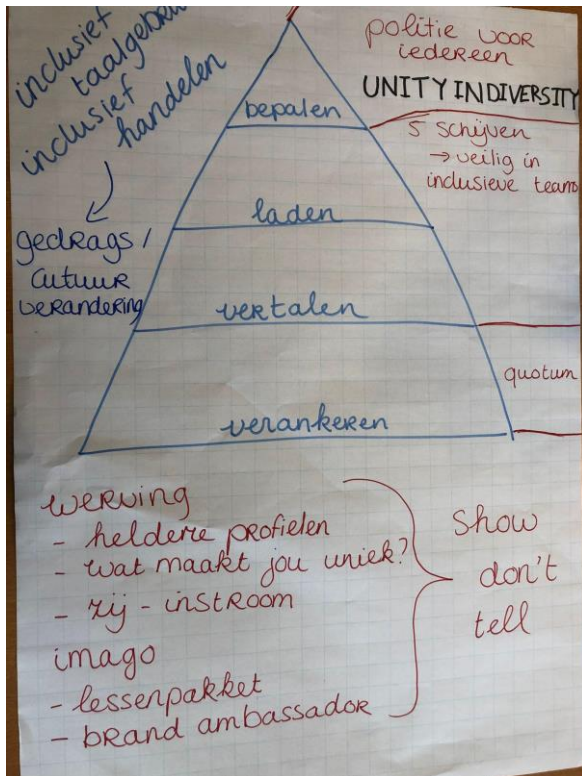 inclusief
taalgebru
inclusief
handelen
gedrags/
cutuur
verandering
politie voor
iedereen
UNITY IN DIVERSITY
5 schijven
→ veilig in
inclusieve teams
bepalen
laden
vertalen
verankeren
quotum
werving
- heldere profielen
- wat maakt jou uniek?
- zij-instroom
imago
- lessenpakket
- brand ambassador
Show
don't
tell